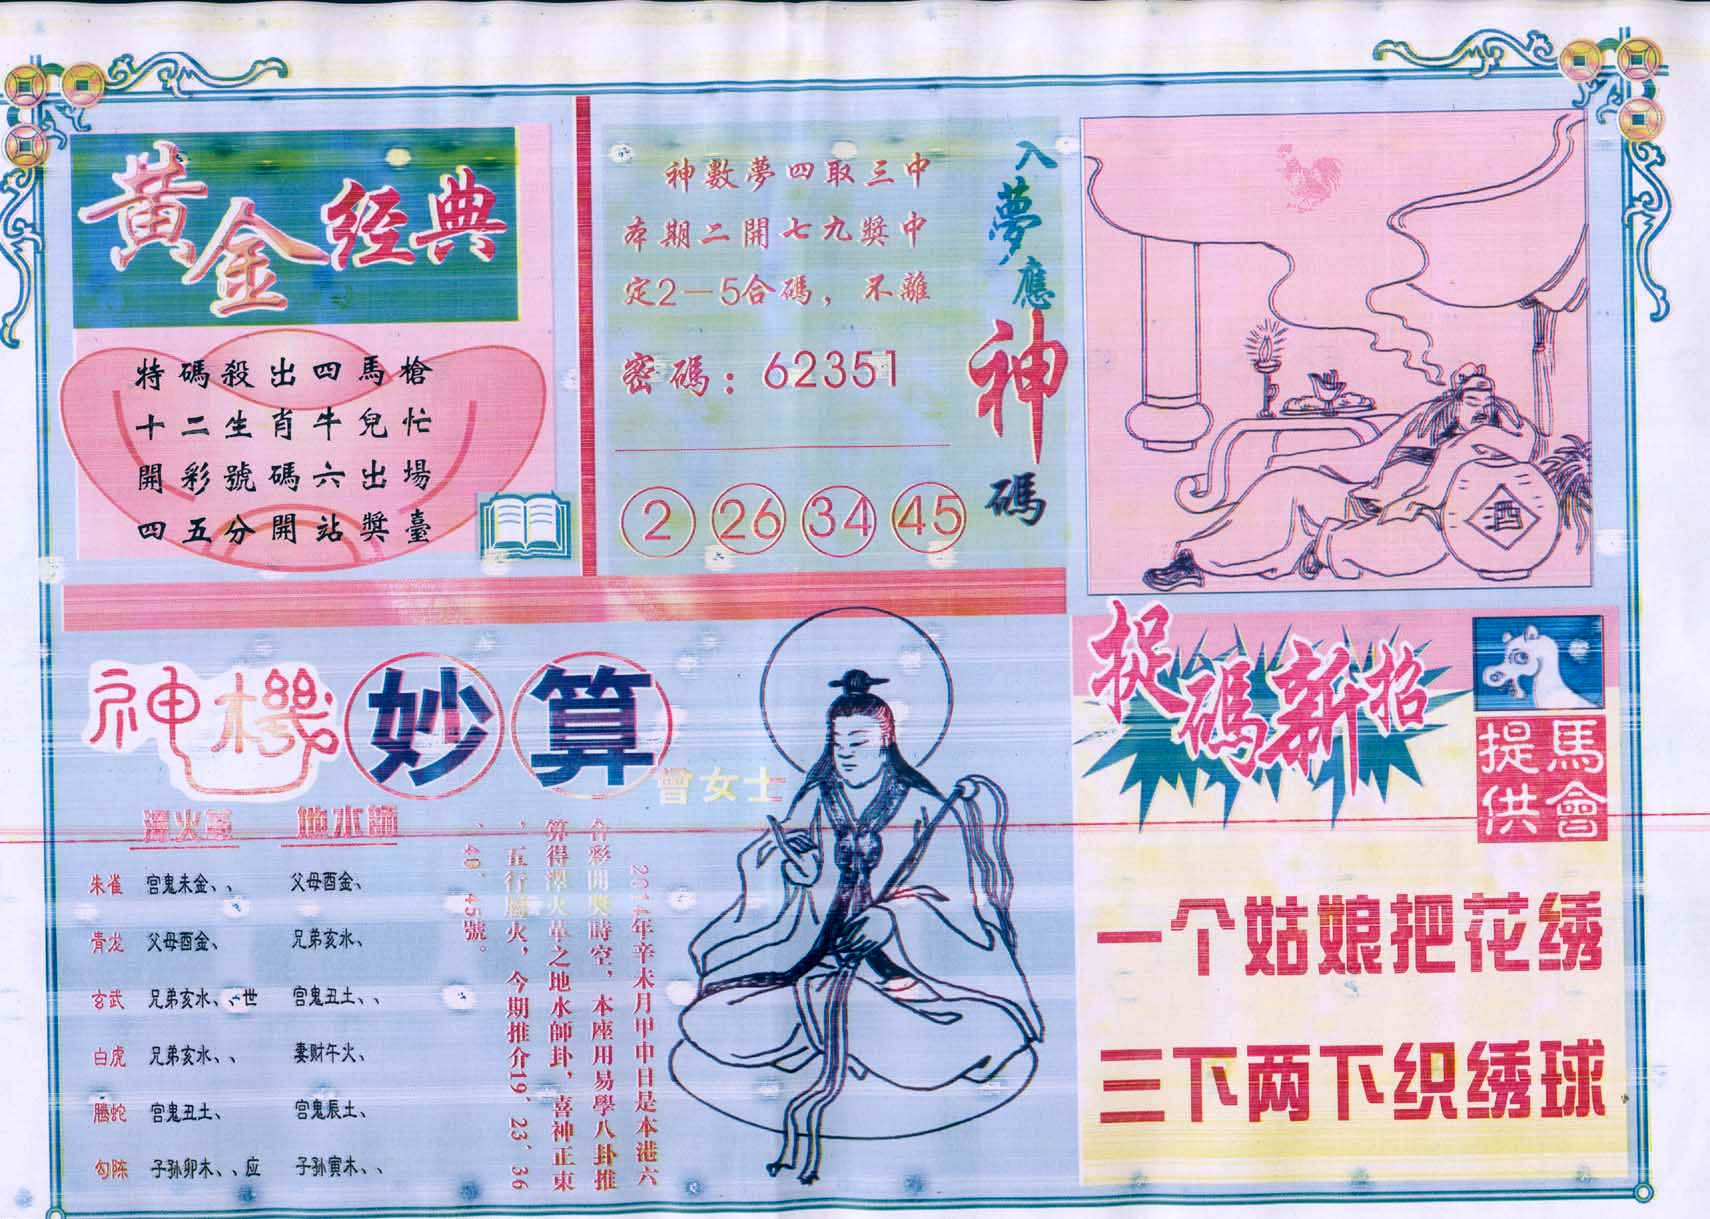 黄金经典
特碼殺出四馬槍
十二生肖牛兒忙
開彩號碼六出場
四五分開站獎臺
神數夢四取三中
本期二開七九獎中
定2—5合碼，不離
密碼：62351
2 26 34 45
入夢應神碼
酒
神機妙算
曾女士
澤火革 地水師
朱雀 官鬼未金、、 父母酉金、
青龙 父母酉金、 兄弟亥水、
玄武 兄弟亥水、、世 官鬼丑土、、
白虎 兄弟亥水、、 妻财午火、
腾蛇 官鬼丑土、 官鬼辰土、
勾陈 子孙卯木、、应 子孙寅木、、
2014年辛未月甲申日是本港六
合彩開獎時空，本座用易學八卦推
算得澤火革之地水師卦，喜神正東
，五行屬火，今期推介19、23、36
、40、45號。
捉碼新招
馬會
提供
一个姑娘把花绣
三下两下织绣球